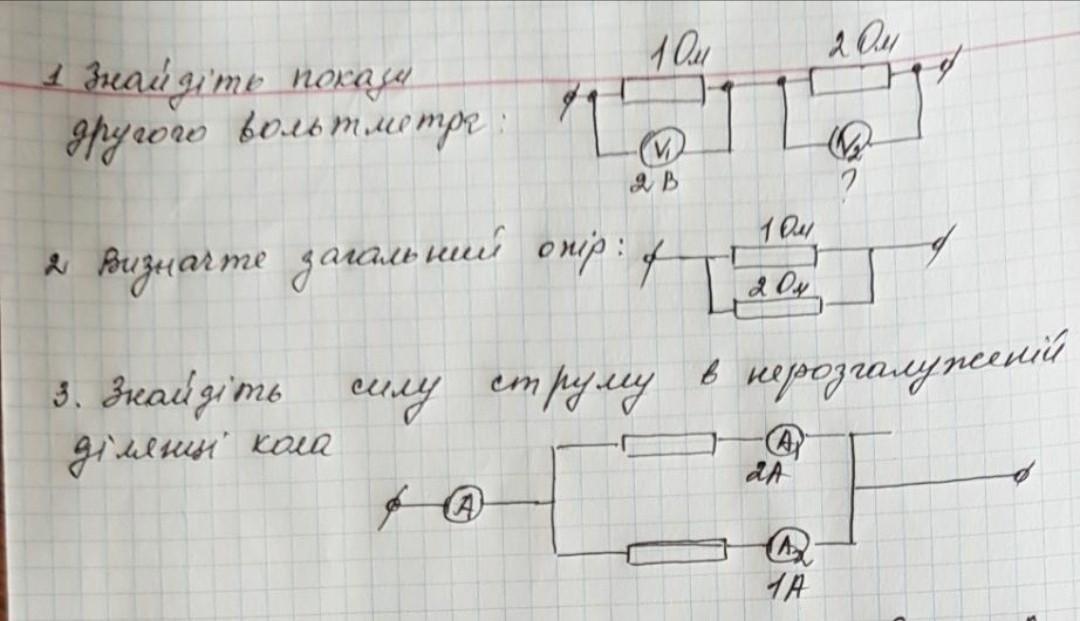 1 Знайдіть покази
другого вольтметра:
1 Ом
2 Ом
V1
V2
2 В
?
2 Визначте загальний опір:
1 Ом
2 Ом
3. Знайдіть силу струму в нерозгалуженій
ділянці кола
A
A1
2А
A2
1А